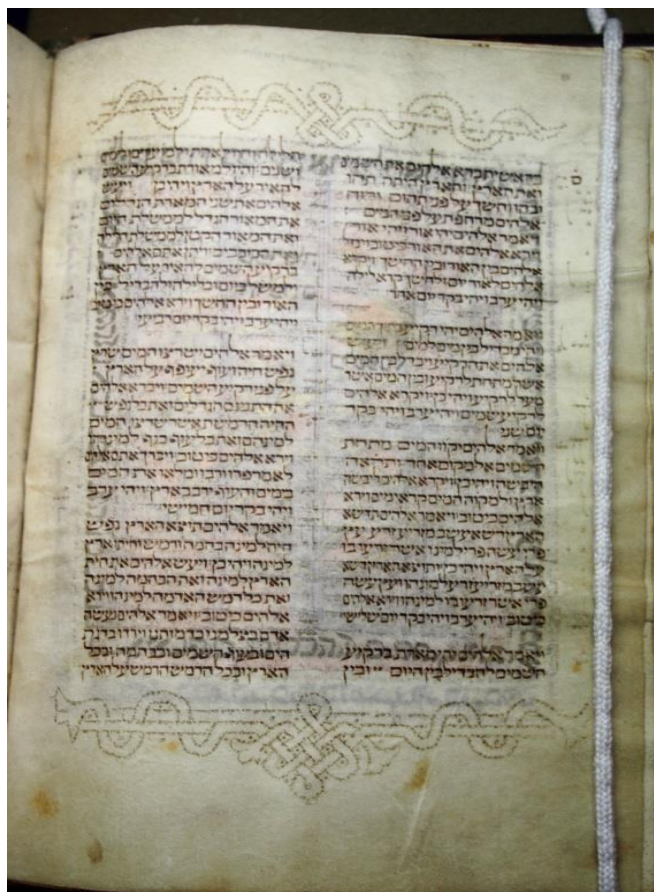 בראשית ברא אלהים את השמים
ואת הארץ והארץ היתה תהו
ובהו וחשך על פני תהום ורוח
אלהים מרחפת על פני המים
ויאמר אלהים יהי אור ויהי אור
וירא אלהים את האור כי טוב ויבדל
אלהים בין האור ובין החשך ויקרא
אלהים לאור יום ולחשך קרא לילה
ויהי ערב ויהי בקר יום אחד
ויאמר אלהים יהי רקיע בתוך המים
ויהי מבדיל בין מים למים ויעש
אלהים את הרקיע ויבדל בין המים
אשר מתחת לרקיע ובין המים אשר
מעל לרקיע ויהי כן ויקרא אלהים
לרקיע שמים ויהי ערב ויהי בקר
יום שני
ויאמר אלהים יקוו המים מתחת
השמים אל מקום אחד ותראה
היבשה ויהי כן ויקרא אלהים ליבשה
ארץ ולמקוה המים קרא ימים וירא
אלהים כי טוב ויאמר אלהים תדשא
הארץ דשא עשב מזריע זרע עץ
פרי עשה פרי למינו אשר זרעו בו
על הארץ ויהי כן ותוצא הארץ דשא
עשב מזריע זרע למינהו ועץ עשה
פרי אשר זרעו בו למינהו וירא אלהים
כי טוב ויהי ערב ויהי בקר יום שלישי
ויאמר אלהים יהי מארת ברקיע
השמים להבדיל בין היום ובין
הלילה והיו לאתת ולמועדים ולימים
ושנים והיו למאורת ברקיע השמים
להאיר על הארץ ויהי כן ויעש
אלהים את שני המארת הגדולים
את המאור הגדל לממשלת היום
ואת המאור הקטן לממשלת הלילה
ואת הכוכבים ויתן אתם אלהים
ברקיע השמים להאיר על הארץ
ולמשל ביום ובלילה ולהבדיל בין
האור ובין החשך וירא אלהים כי טוב
ויהי ערב ויהי בקר יום רביעי
ויאמר אלהים ישרצו המים שרץ
נפש חיה ועוף יעופף על הארץ
על פני רקיע השמים ויברא אלהים
את התנינם הגדלים ואת כל נפש
החיה הרמשת אשר שרצו המים
למינהם ואת כל עוף כנף למינהו
וירא אלהים כי טוב ויברך אתם אלהים
לאמר פרו ורבו ומלאו את המים
בימים והעוף ירב בארץ ויהי ערב
ויהי בקר יום חמישי
ויאמר אלהים תוצא הארץ נפש
חיה למינה בהמה ורמש וחיתו ארץ
למינה ויהי כן ויעש אלהים את חית
הארץ למינה ואת הבהמה למינה
ואת כל רמש האדמה למינהו וירא
אלהים כי טוב ויאמר אלהים נעשה
אדם בצלמנו כדמותנו וירדו בדגת
הים ובעוף השמים ובבהמה ובכל
הארץ ובכל הרמש הרמש על הארץ